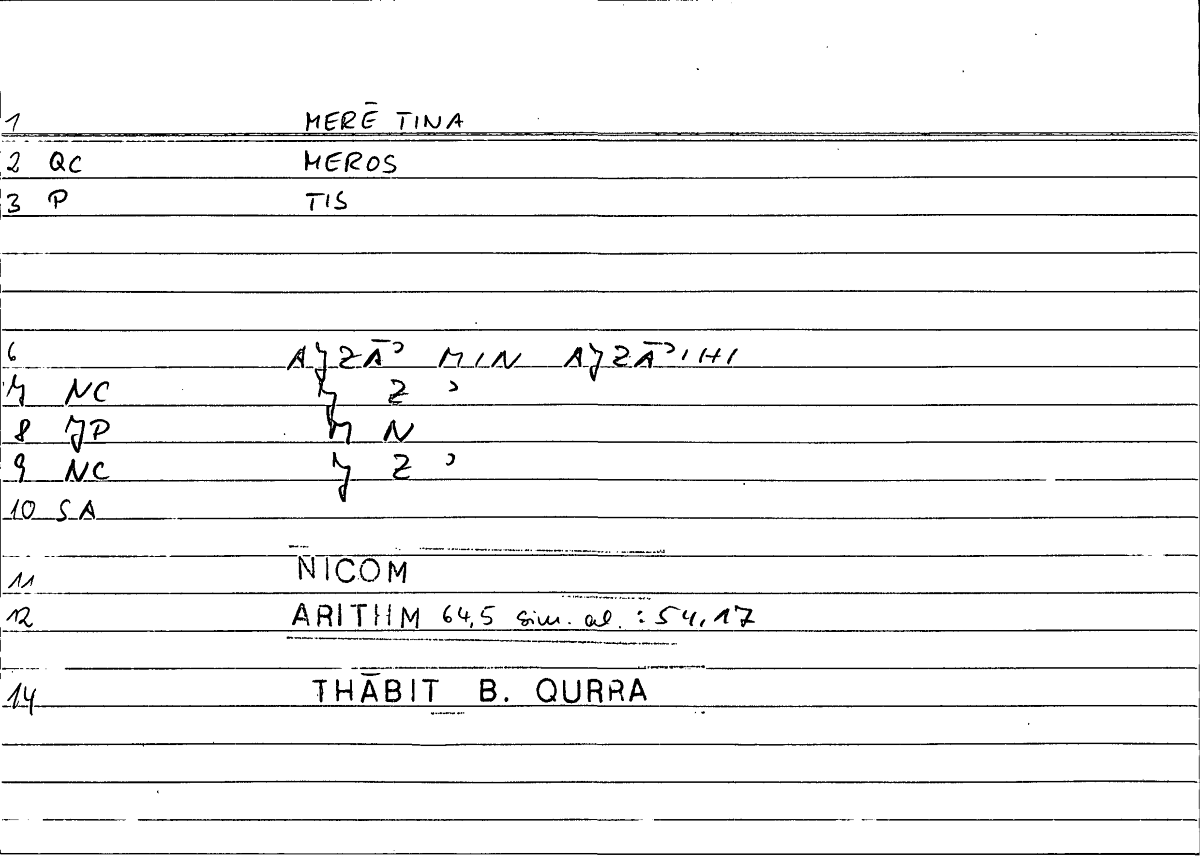 1 MERĒ TINA
2 QC MEROS
3 P TIS
6 AJZĀʾ MIN AJZĀʾIHI
7 NC J Z ʾ
8 JP M N
9 NC J Z ʾ
10 SA
11 NICOM
12 ARITHM 64,5 sim. al. : 54,17
14 THĀBIT B. QURRA